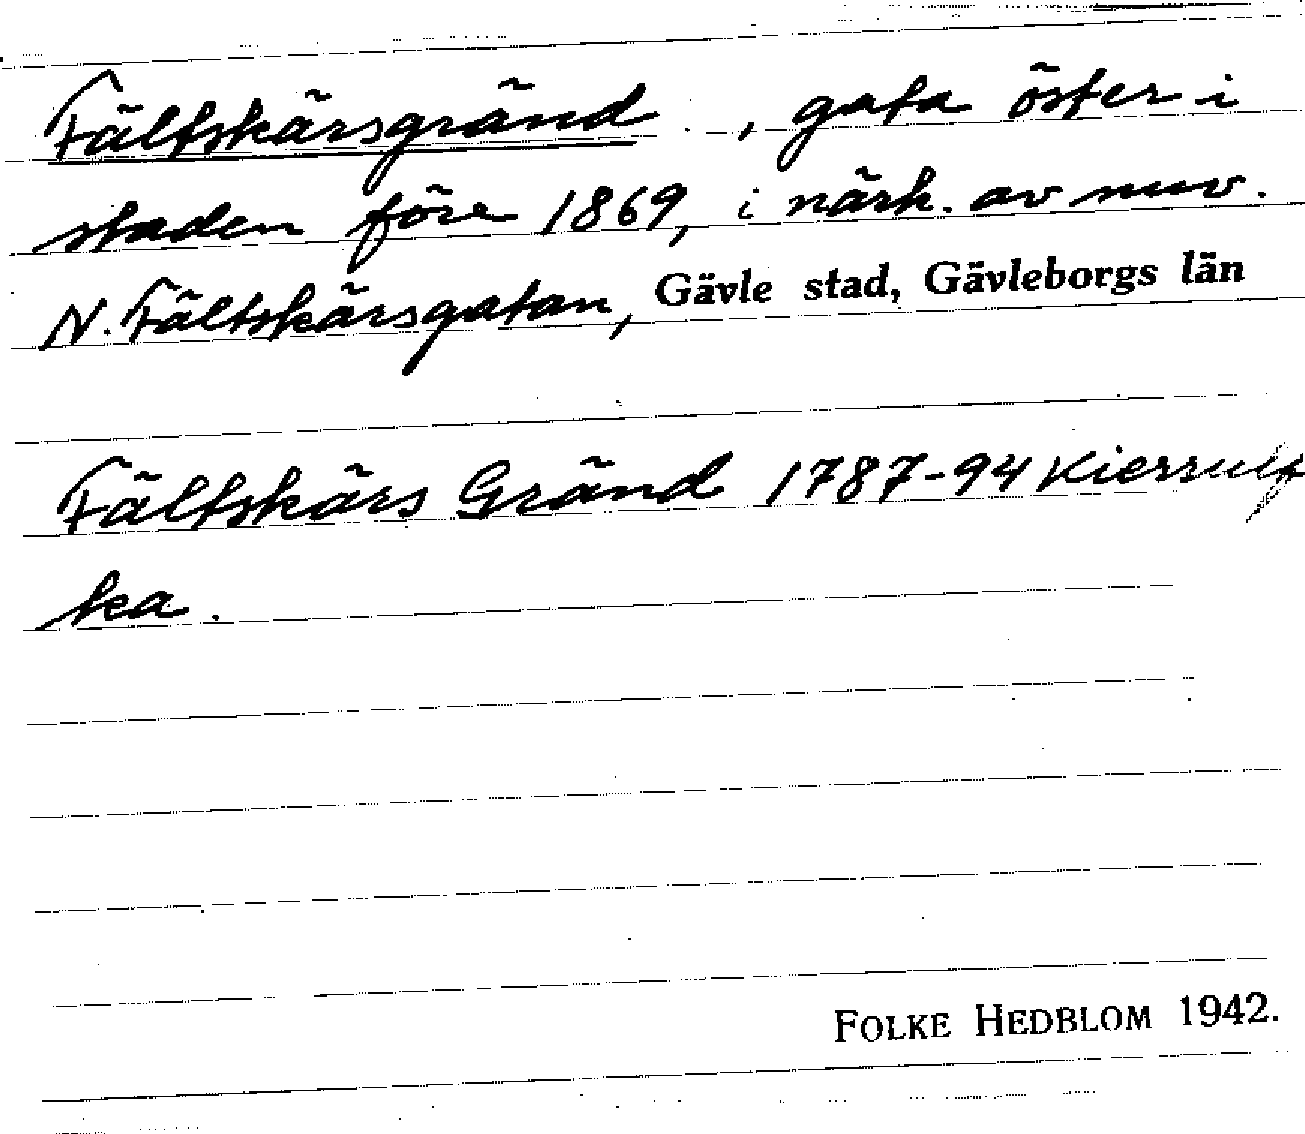 Fältskärsgränd, gata öster i
staden före 1869, i närh. av nuv.
N. Fältskärsgatan, Gävle stad, Gävleborgs län
Fältskärs Gränd 1787-94 Kierrulf
ka.
FOLKE HEDBLOM 1942.